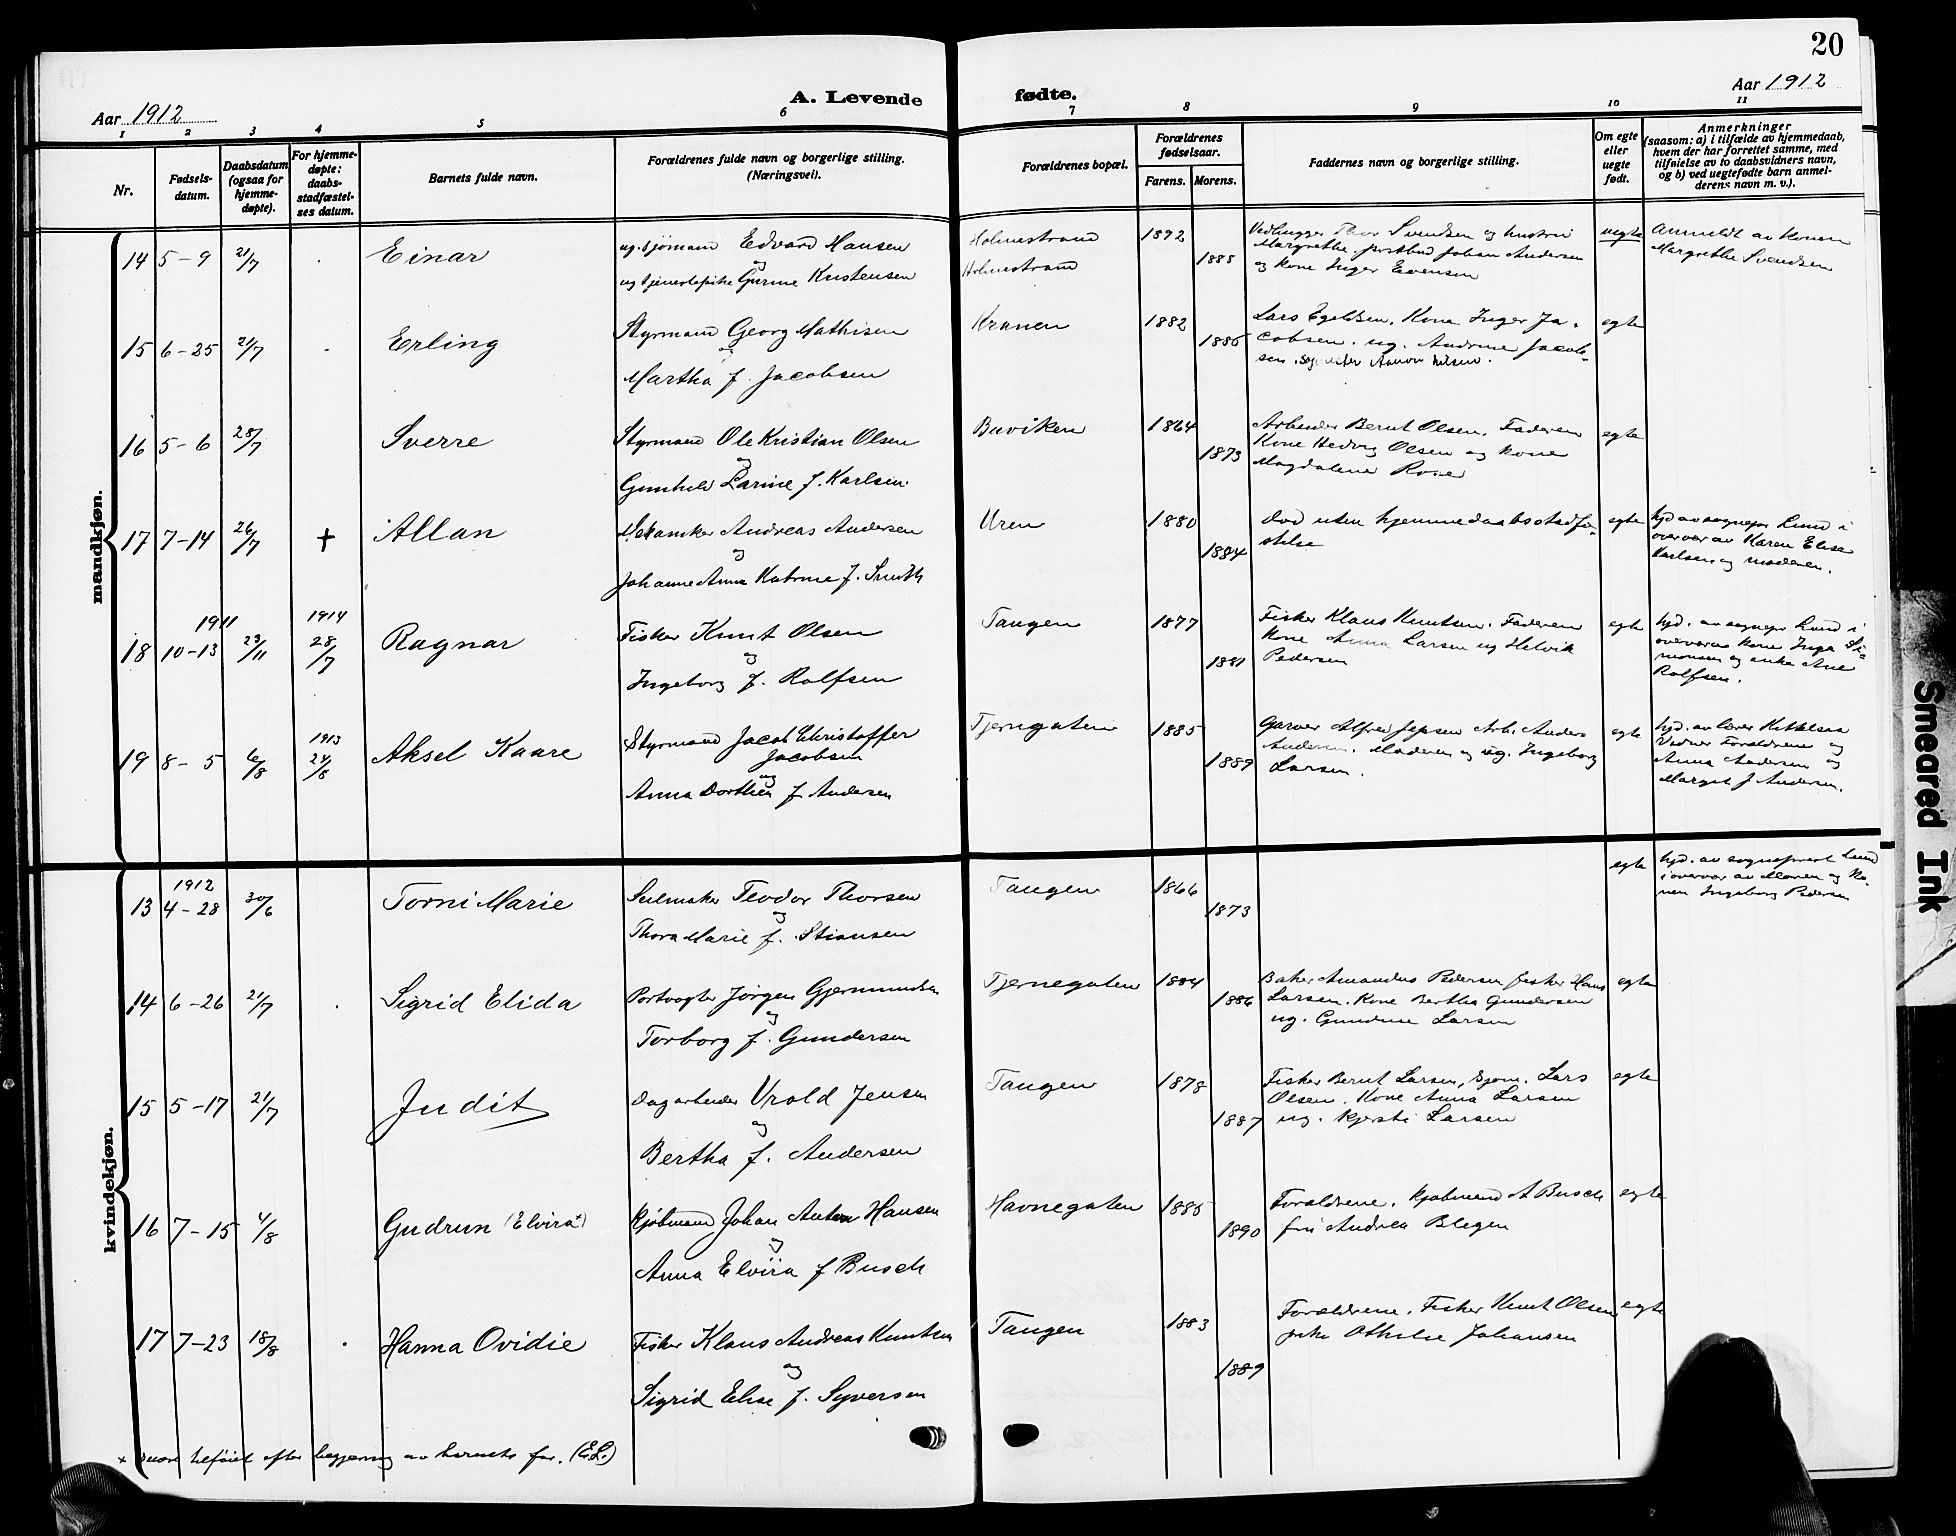 20
Aar 1912
A. Levende
fødte.
Aar 1912
1 2 3 4 5 6 7 8 9 10 11
Nr.
Fødsels-
datum.
Daabsdatum
(ogsaa for
hjemme-
døpte).
For hjemme-
døpte:
daabs-
stadfæstel-
ses datum.
Barnets fulde navn.
Forældrenes fulde navn og borgerlige stilling.
(Næringsvei).
Forældrenes bopæl.
Forældrenes
fødselsaar.
Farens. Morens.
Faddernes navn og borgerlige stilling.
Om egte
eller
uegte
født.
Anmerkninger
(saasom: a) i tilfælde av hjemmedaab,
hvem der har forrettet samme, med
tilføielse av to daabsvidners navn,
og b) ved uegtefødte barn anmel-
derens navn m. v.).
mandkjøn.
14 5-9 21/7 Einar
ug. sjømand Edvard Hansen
og
ug tjenestepike Gurine Kristensen
Holmestrand
Holmestrand
1892
1888
Vedhugger Thor Svendsen og hustru
Margrethe, postbud Johan Andersen
og kone Inger Evensen
uegte
Anmeldt av konen
Margrethe Svendsen
15 6-25 21/7 Erling
Styrmand Georg Mathisen
og
Martha f. Jacobsen
Kranen
1882
1886
Lars Egeldsen, Kone Inger Ja-
cobsen. ug. Andrine Jacob-
sen.
egte
16 5-6 28/7 Sverre
Styrmand Ole Kristian Olsen
og
Gunhild Larine f. Karlsen
Buviken
1864
1873
Arbeider Bernt Olsen. Faderen
Kone Hedvig Olsen og kone
Magdalene Rove
egte
17 7-14 26/7 † Allan
Mekaniker Andreas Andersen
og
Johanne Anna Katrine f. Smith
Uren
1880
1884
Død uten hjemmedaabsstadfæ-
stelse
egte
hjd av sognepr Lund i
overvær av Karen Elise
Karlsen og moderen.
18 1911 10-13 23/11 1914 28/7 Ragnar
Fisker Knut Olsen
og
Ingeborg f. Rolfsen
Tangen
1877
1881
Fisker Klaus Knutsen. Faderen
Kone Anna Larsen ug Helvik
Pedersen
egte
hjd. av sognepr Lund i
overvær Kone Inga Si-
monsen og enke Ane
Rolfsen.
19 8-5 6/8 1913 24/8 Aksel Kaare
Styrmand Jacob Christoffer
Jacobsen
og
Anna Dorthea f Andersen
Tjernegaten
1885
1889
Garver Alfred Jepsen Arb. Anders
Andersen. Moderen og ug. Ingeborg
Larsen.
egte
hjd. av lærer Kittelsen
Vidner Forældrene og
Anna Andersen og
Margit f Andersen.
kvindekjøn.
13 1912 4-28 30/6 Torni Marie
Seilmaker Teodor Thorsen
og
Thora Marie f. Stiansen
Tangen
1866
1873
egte
hjd. av sogneprest Lund
i overvær av Moren og Ko-
nen Ingeborg Pedersen
14 6-26 21/7 Sigrid Elida
Portvogter Jørgen Gjermundsen
og
Torborg f. Gundersen
Tjernegaten
1884
1886
Baker Amandus Pedersen fisker Hans
Larsen. Kone Bertha Gundersen
ug. Gundine Larsen
egte
15 5-17 21/7 Judit
Dagarbeider Vrold Jensen
og
Bertha f. Andersen
Tangen
1878
1887
Fisker Bernt Larsen, Sjøm. Lars
Olsen. Kone Anna Larsen
ug. Kjersti Larsen
egte
16 7-15 4/8 Gudrun (Elvira+)
Kjøbmand Johan Anton Hansen
og
Anna Elvira f Busch
Havnegaten
1885
1890
Forældrene. Kjøbmand A Busch
frk Andrea Blegen
egte
17 7-23 18/8 Hanna Ovidie
Fisker Klaus Andreas Knutsen
og
Sigrid Elise f. Syversen
Tangen
1883
1889
Forældrene. Fisker Knut Olsen
pike Othilie Johansen
egte
+ tilføiet efter begjæring av barnets far. (E.L.)
Smeared Ink